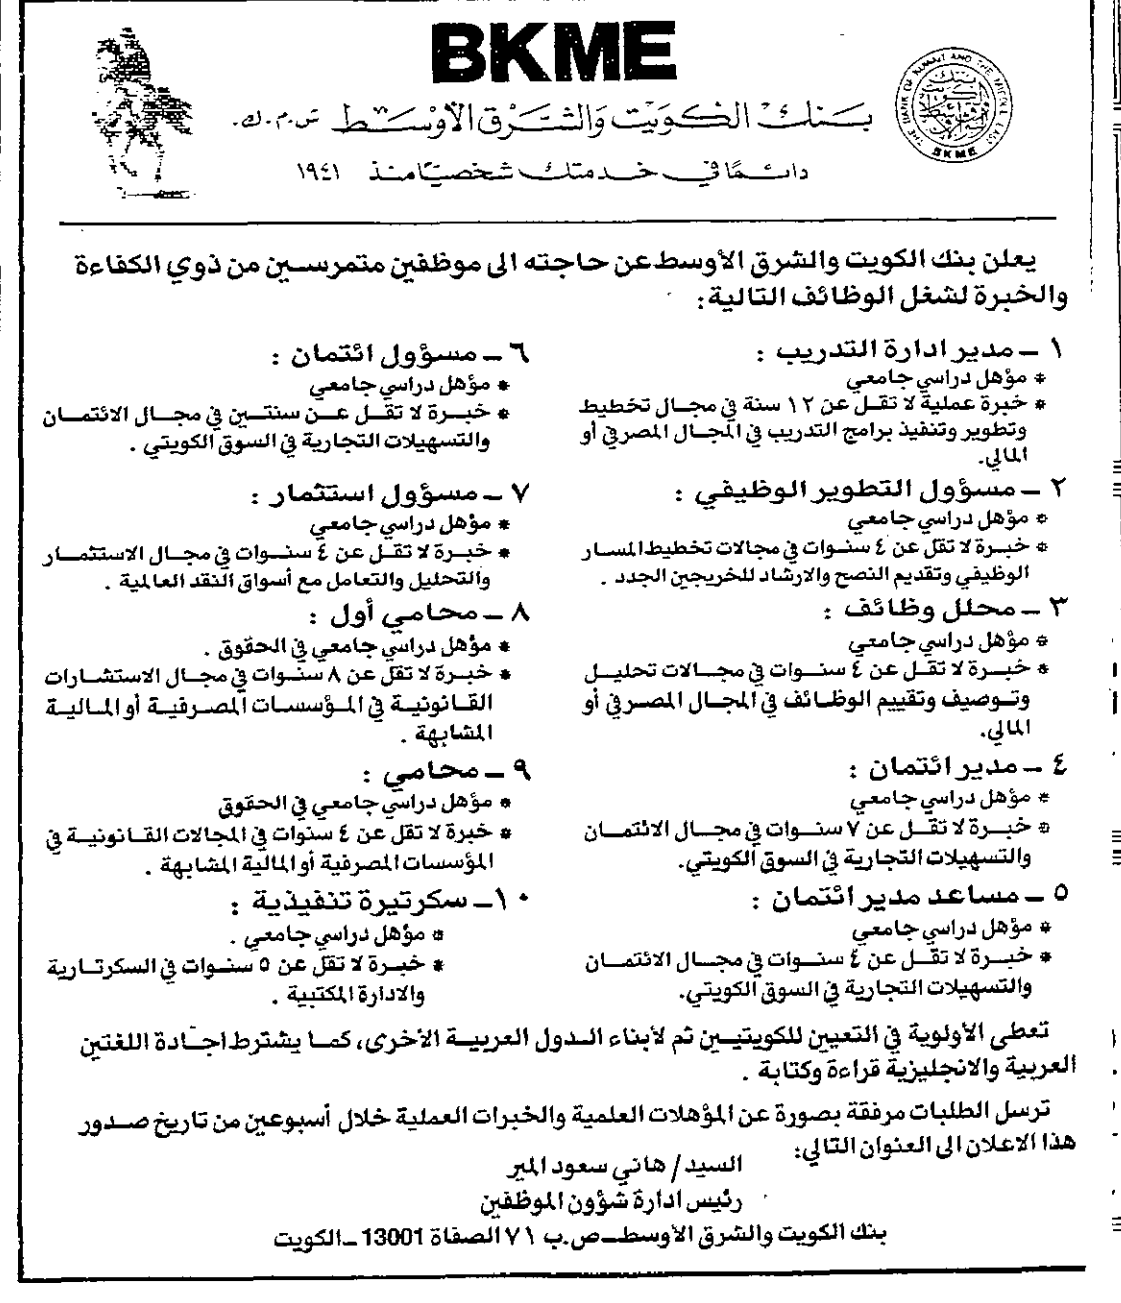 BKME
بنك الكويت والشرق الأوسط ش.م.ك.
THE BANK OF KUWAIT AND THE MIDDLE EAST
BKME
دائمًا في خدمتك شخصيًا منذ ١٩٤١
يعلن بنك الكويت والشرق الأوسط عن حاجته الى موظفين متمرسين من ذوي الكفاءة
والخبرة لشغل الوظائف التالية:
١ ـ مدير ادارة التدريب :
* مؤهل دراسي جامعي
* خبرة عملية لا تقل عن ١٢ سنة في مجال تخطيط
وتطوير وتنفيذ برامج التدريب في المجال المصرفي أو
المالي.
٢ ـ مسؤول التطوير الوظيفي :
* مؤهل دراسي جامعي
* خبرة لا تقل عن ٤ سنوات في مجالات تخطيط المسار
الوظيفي وتقديم النصح والارشاد للخريجين الجدد .
٣ ـ محلل وظائف :
* مؤهل دراسي جامعي
* خبرة لا تقل عن ٤ سنوات في مجالات تحليل
وتوصيف وتقييم الوظائف في المجال المصرفي أو
المالي.
٤ ـ مدير ائتمان :
* مؤهل دراسي جامعي
* خبرة لا تقل عن ٧ سنوات في مجال الائتمان
والتسهيلات التجارية في السوق الكويتي.
٥ ـ مساعد مدير ائتمان :
* مؤهل دراسي جامعي
* خبرة لا تقل عن ٤ سنوات في مجال الائتمان
والتسهيلات التجارية في السوق الكويتي.
٦ ـ مسؤول ائتمان :
* مؤهل دراسي جامعي
* خبرة لا تقل عن سنتين في مجال الائتمان
والتسهيلات التجارية في السوق الكويتي .
٧ ـ مسؤول استثمار :
* مؤهل دراسي جامعي
* خبرة لا تقل عن ٤ سنوات في مجال الاستثمار
والتحليل والتعامل مع أسواق النقد العالمية .
٨ ـ محامي أول :
* مؤهل دراسي جامعي في الحقوق .
* خبرة لا تقل عن ٨ سنوات في مجال الاستشارات
القانونية في المؤسسات المصرفية أو المالية
المشابهة .
٩ ـ محامي :
* مؤهل دراسي جامعي في الحقوق
* خبرة لا تقل عن ٤ سنوات في المجالات القانونية في
المؤسسات المصرفية أو المالية المشابهة .
١٠ـ سكرتيرة تنفيذية :
* مؤهل دراسي جامعي .
* خبرة لا تقل عن ٥ سنوات في السكرتارية
والادارة المكتبية .
تعطى الأولوية في التعيين للكويتيين ثم لأبناء الدول العربية الأخرى، كما يشترط اجادة اللغتين
العربية والانجليزية قراءة وكتابة .
ترسل الطلبات مرفقة بصورة عن المؤهلات العلمية والخبرات العملية خلال أسبوعين من تاريخ صدور
هذا الاعلان الى العنوان التالي:
السيد/ هاني سعود المير
رئيس ادارة شؤون الموظفين
بنك الكويت والشرق الأوسط ـ ص.ب ٧١ الصفاة 13001 ـ الكويت